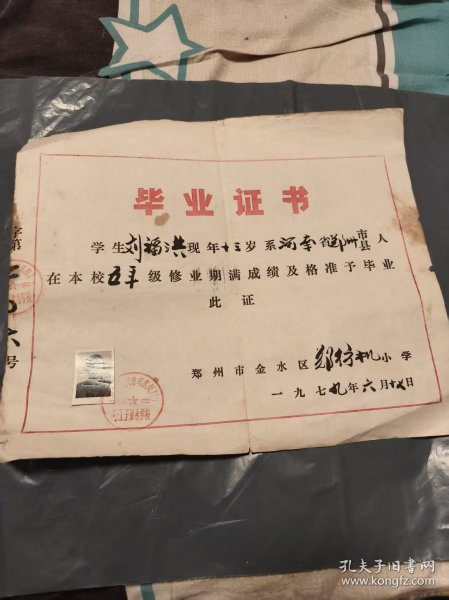 毕业证书
学生刘福洪现年十三岁系河南省郑州市县人
在本校五年级修业期满成绩及格准予毕业
此证
郑州市金水区郑纺机小学
一九七九年六月十七日
字第二〇六号
孔夫子旧书网
www.kongfz.com